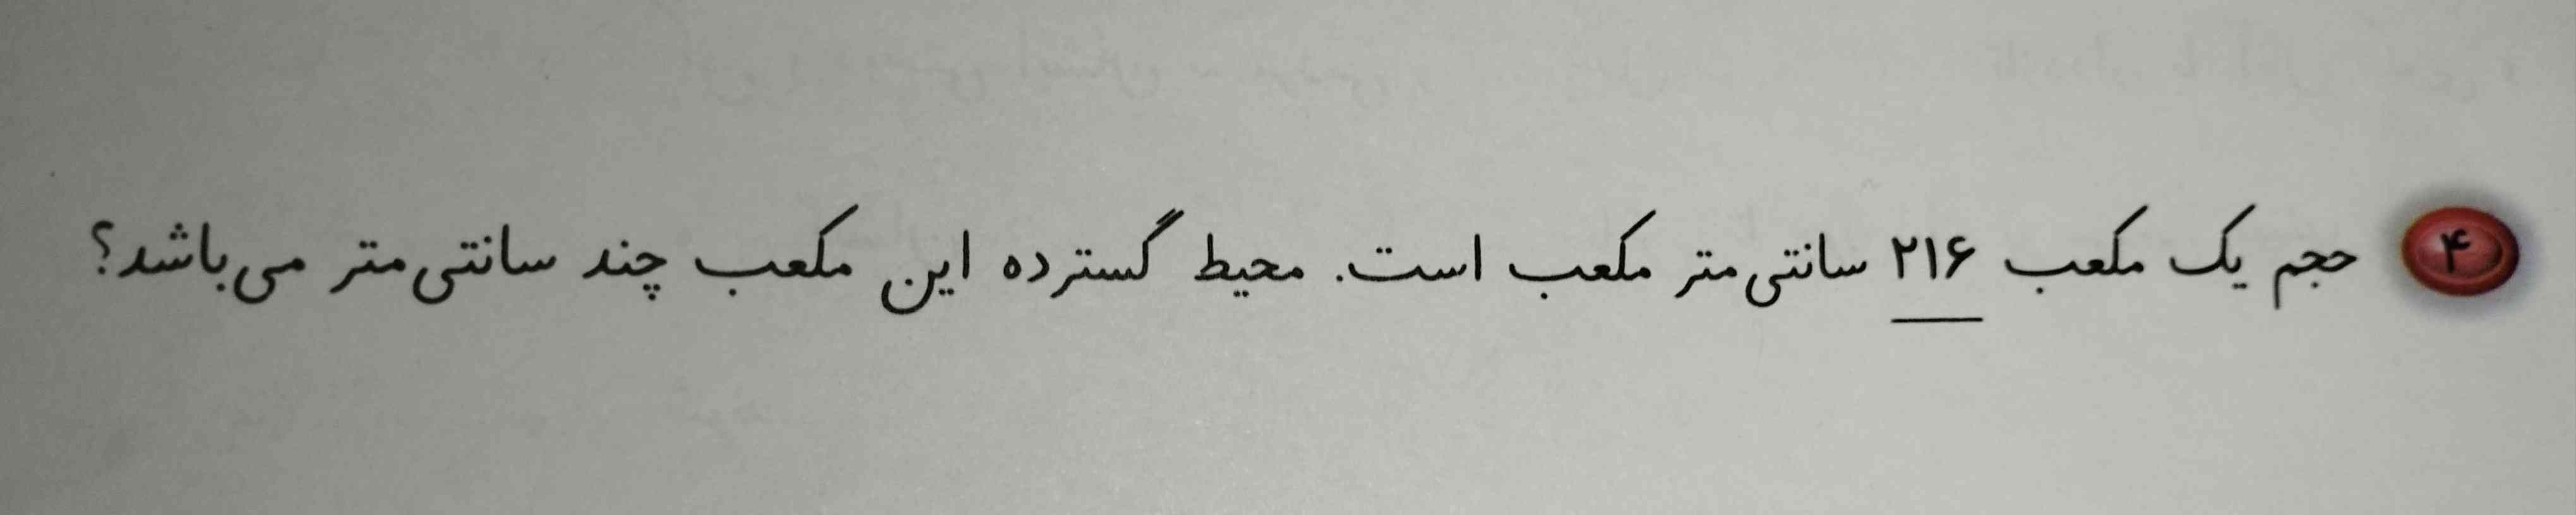 ۴ حجم یک مکعب ۲۱۶ سانتی‌متر مکعب است. محیط گسترده این مکعب چند سانتی‌متر می‌باشد؟